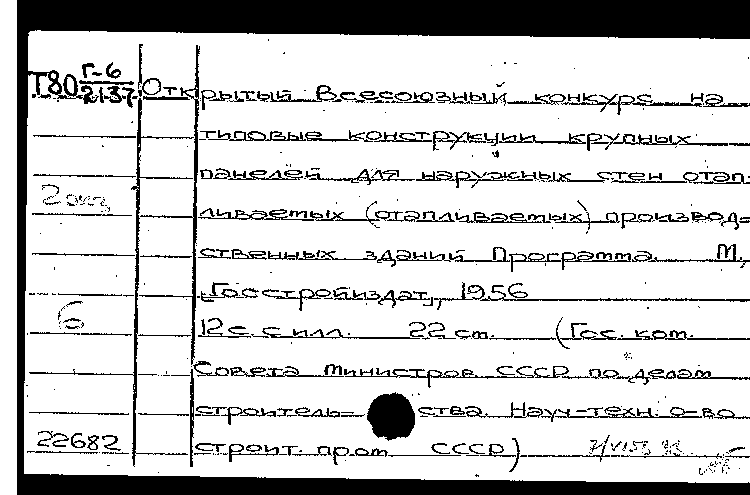 Т80 Г-6 Открытый Всесоюзный конкурс на
2137
типовые конструкции крупных
панелей для наружных стен отап-
2 экз
ливаемых (отапливаемых) производ=
ственных зданий Программа. М,
„Госстройиздат„, 1956
6
12 с. с илл. 22 см. (Гос. ком.
Совета Министров СССР по делам
строитель- ства. Науч-техн. о-во
22682 строит. пром. СССР)